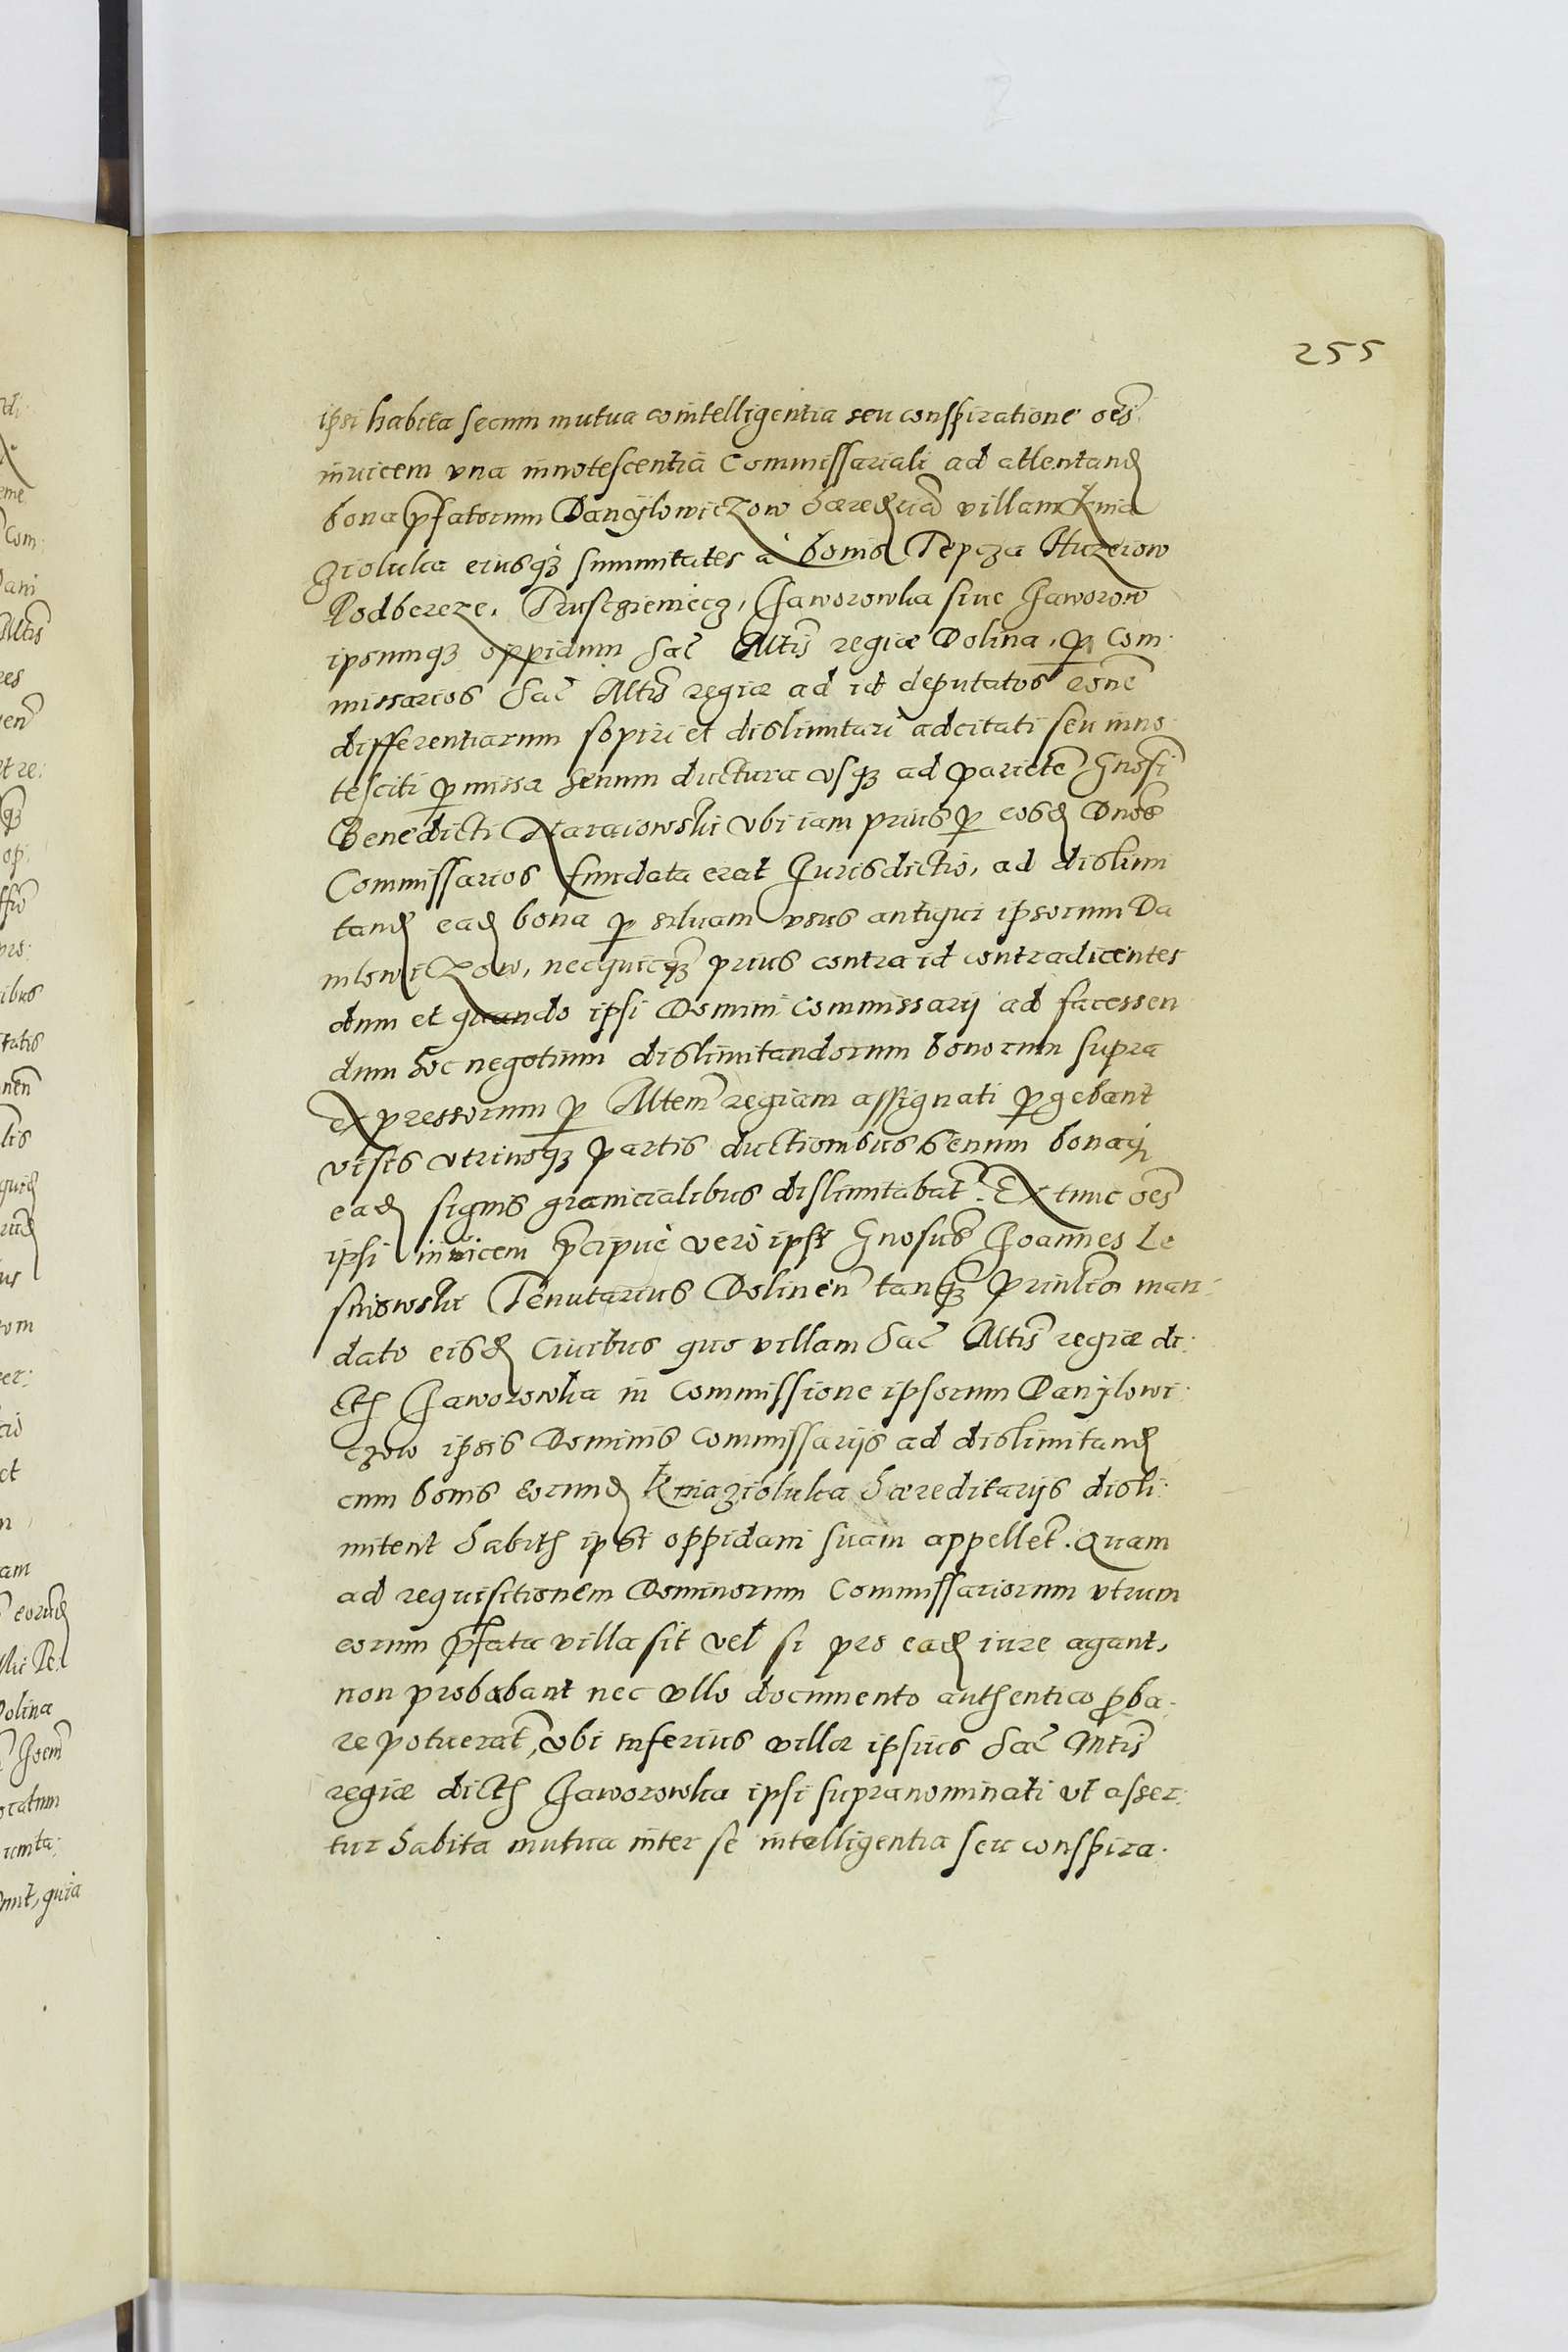 255
ipsi habita secum mutua cointelligentia seu conspiratione oẽs
inuicem vna innotescentia Commissariali ad attentand
bona pfatorum Danÿlowiczow hæredria villam Knia
zioluka eiusqȝ summitates à bonis Tepcza Huzeiow
Podbereze, Trusczieniecz, Jaworowka siue Jaworow
ipsumqȝ oppidum Sac Mtis regiæ Dolina, p Com
missarios Sac Mtis regiæ ad id deputatos rõne
differentiarum sopiri et dislimitari adcitati seu inno
tesciti pmissa senum ductura vsqȝ ad parietẽ Gnosi
Benedicti Naraiowski vbi iam prius p eosd Dnos
Commissarios fundata erat Jurisdictio, ad dislimi
tand ead bona p siluam vsus antiqui ipsorum Da
nilowiczow, necquicqȝ prius contra id contradicentes
dum et quando ipsi Domini Commissarij ad facessen
dum hoc negotium dislimitandorum bonorum supra
expressorum p Mtem regiam assignati pgebant
visis vtriusqȝ partis ductionibus senum bonaq
ead signis granicialibus dislimitabat. Ex tunc oẽs
ipsi inuicem pcipuè verò ipse Gnosus Joannes Le
sniowski Tenutarius Dolinen tanqȝ principa man
dato eisd Ciuibus quo villam Sac Mtis regiæ di
cth Jaworowka in Commissione ipsorum Danÿlowi
czow ipsis Dominis Commissarijs ad dislimitand
cum bonis eorund Kniaziołuka hæreditarijs disli
mitent habith ipsi oppidani suam appellet. Quam
ad requisitionem Dominorum Commissariorum vtrum
eorum pfata villa sit vel si pro ead iure agant,
non probabant nec vllo documento authentico pba
re potuerat, vbi inferius villæ ipsius Sac Mtis
regiæ dicth Jaworowka ipsi supranominati vt asser
tur habita mutua inter se intelligentia seu conspira